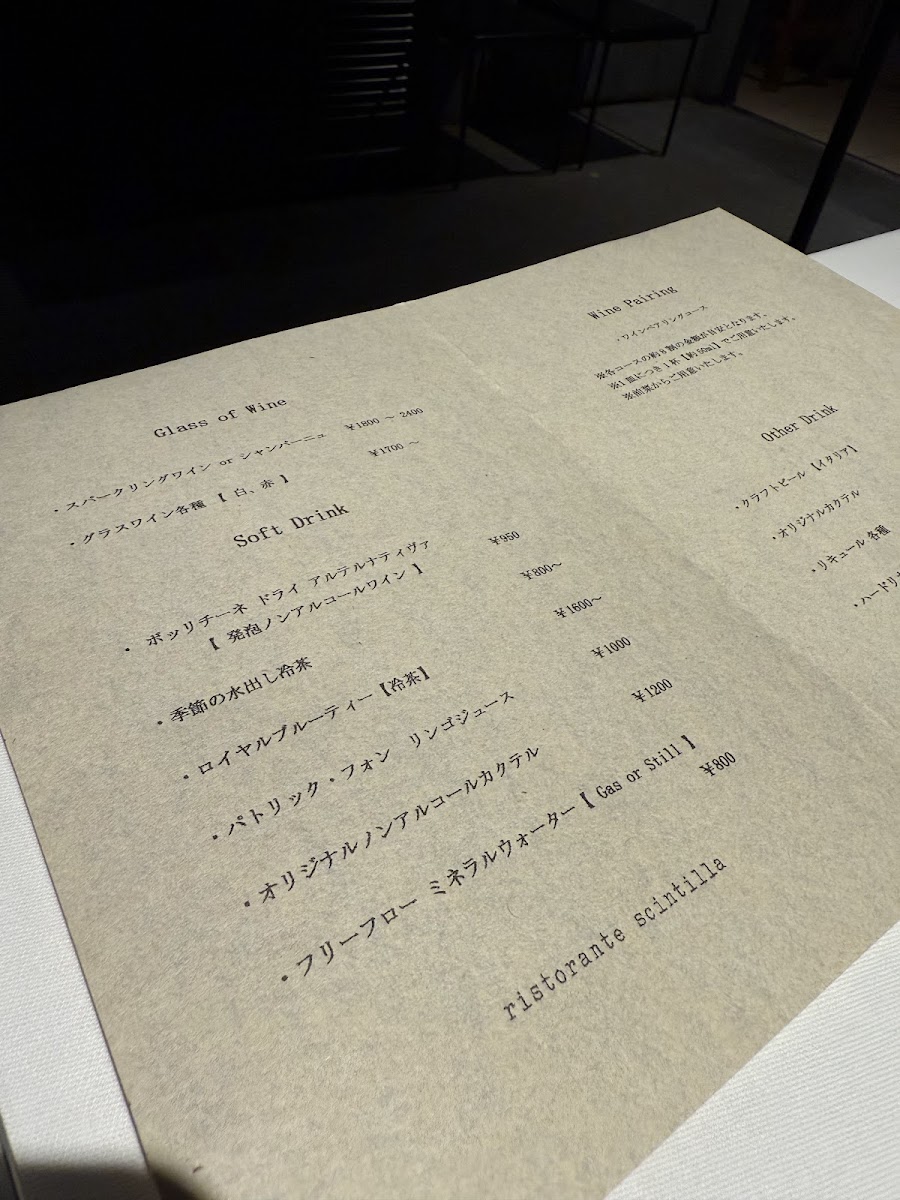 Glass of Wine
・スパークリングワイン or シャンパーニュ ¥1800 ～ 2400
・グラスワイン各種 【 白、赤 】 ¥1700 ～
Soft Drink
・ ボッリチーネ ドライ アルテルナティヴァ ¥950
【 発泡ノンアルコールワイン 】
・季節の水出し冷茶 ¥800～
・ロイヤルブルーティー【冷茶】 ¥1600～
・パトリック・フォン リンゴジュース ¥1000
・オリジナルノンアルコールカクテル ¥1200
・フリーフロー ミネラルウォーター【 Gas or Still 】 ¥800
ristorante scintilla
Wine Pairing
・ワインペアリングコース
※各コースの約８割の金額が目安となります。
※１皿につき１杯【約50ml】でご用意いたします。
※前菜からご用意いたします。
Other Drink
・クラフトビール 【イタリア】
・オリジナルカクテル
・リキュール 各種